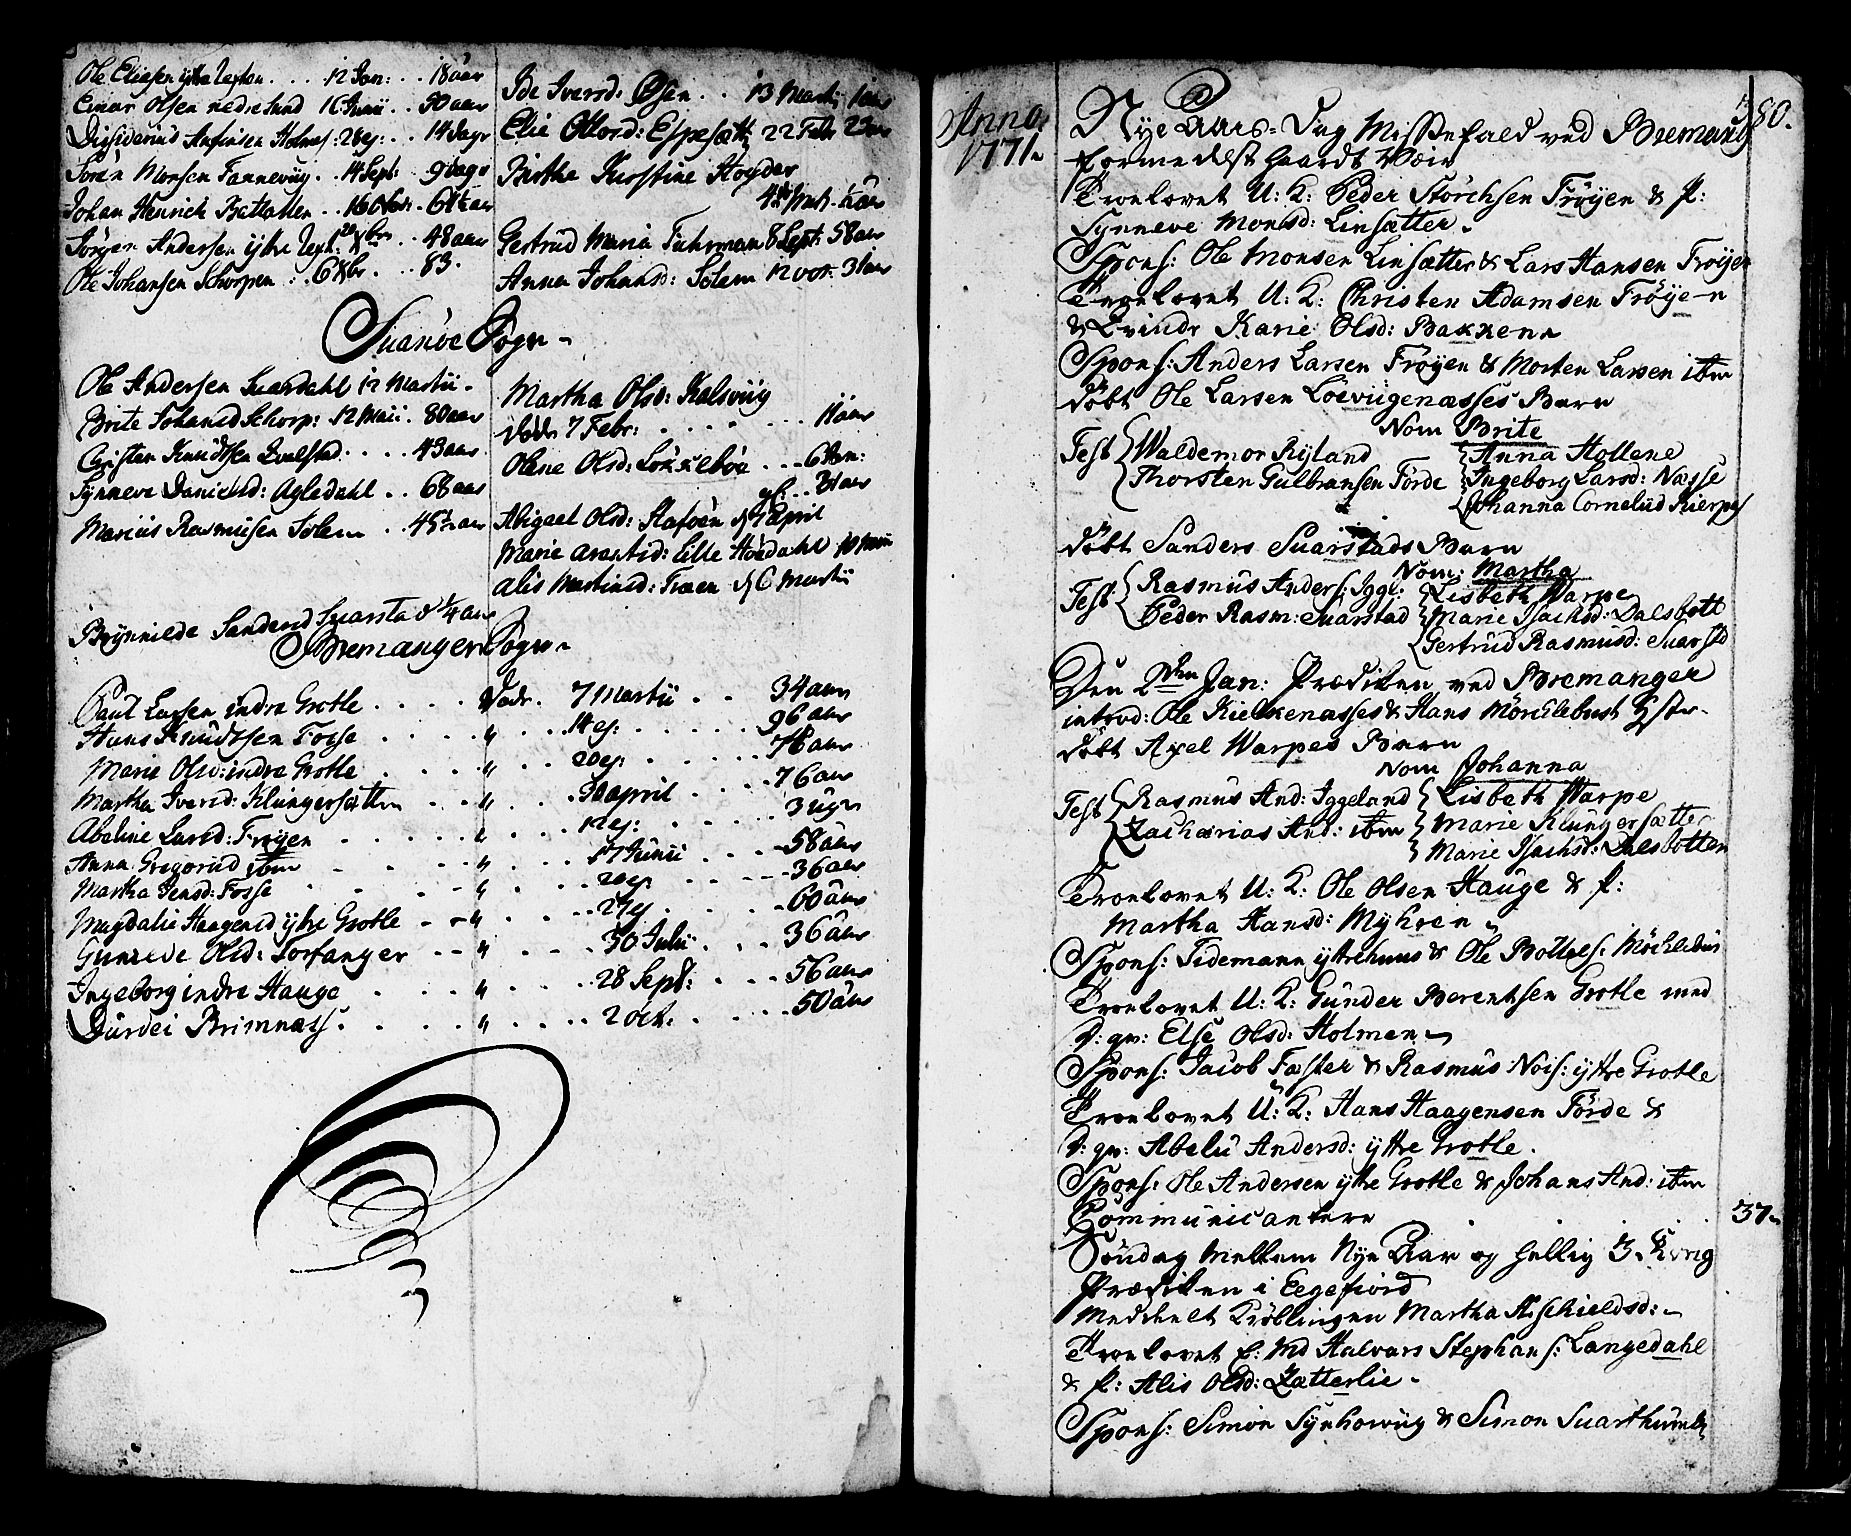 Ole Eliasen ytre Lexton . . . 12 Jan: . . 18 aar
Einar Olsen nedre Lund 16 Junii . . 90 aar
Disiderius Anfinsen Holmes: 28 ej: . . 14 dage
Sören Monsen Fannevug . 14 Sept: 9 dage
Johan Henrich Battalten . . 16 . 64½ aar
Jörgen Andersen ytre . . 48 aar
Ole Johansen Schorpen . : . 6 Xbr . . . 83.
Ide Iversd: Øsen . . 13 Martii 1 aar
Elie Ottord: Espesætt 22 Febr 23 aar
Birthe Kirstine Høyder
Gertrud Maria Fuhrman 8 Sept: 58 aar
Anna Johansd: Solem 12 oct. 31 aar
Suanöe Sogn -
Ole Andersen Suardahl 12 Martii -
Brite Johansd Schorp: 12 Maii . 80 aar
Christen Knudtsen Qvalstad . . . . 43 aar
Synneve Danielsd: Agledahl . . 68 aar
Marius Rasmusen Solem . . 45½ aar
Martha Olsd: Kalsviig
döde 7 Febr: . . . . . . . 11 aar
Olene Olsd: Løkkebøe . . . 6 Jan:
Abigael Olsd: Staføen d 7 April
Marie Arentsd: Lille Hördahl 10 Maii
Alis Martinsd: Træen d 6 Martii
Brynnilde Sandersd Suarstad ¼ aar
Bremanger Sogn -
Paul Larsen indre Grotle . . . . . döde . 7 Martii . . 34 aar
Hans Knudtsen Fosse . . . . . " . . . 14 ej: . . . . . . 96 aar
Marie Olsd: indre Grotle . . . . . " . . . 20 ej: . . . . . . 78 aar
Martha Iversd: Klungersætten . . . " . . . 30 april . . . . . 76 aar
Abeline Larsd: Frøyen . . . . . " . . . 12 ej: . . . . . . 3 uger
Anna Gregorsd itm . . . . . " . . . 17 Junii . . . . 58 aar
Martha Jensd: Fosse . . . . . " . . . 20 ej . . . . . . 36 aar
Magdalie Haagensd ytre Grotle - - " . . . 27 ej . . . . . . 60 aar
Gunilde Olsd: Torfanger - - - " . . . 30 Julii . . . 36 aar
Ingeborg indre Hauge . . . . " . . . 28 Sept: . . . 56 aar
Durdei Brimnæs . . . . . " . . . 2 oct: . . . . . 50 aar
Anno
1771.
380.
Nye Aars-Dag Missefald ved Bremang
formedelst haardt Væir
Troelovet U: K: Peder Störchsen Frøyen & P:
Synneve Monsd: Linsætter.
Spons: Ole Monsen Linsætter & Lars Hansen Frøyen
Troelovet U: K: Christen Adamsen Frøyen
& Qvinde Karie Olsd: Bakken
Spons: Anders Larsen Frøyen & Morten Larsen itm
döbt Ole Larsen Löeviigenæsses Barn
Nom Brite
Test { Waldemor Ryland { Anna Hollene
Thorsten Gulbransen Förde { Ingeborg Larsd: Næsse
Johanna Cornelüd Kierpe
döbt Sanders Suarstads Barn
Nom: Martha
Test { Rasmus Anders: Iggl: { Lisbeth Warpe
Peder Rasm: Suarstad { Marie Isachsd: Dalsbott
Gertrud Rasmusd: Suarstd
Den 2den Jan: Prædiken ved Bremanger
introd: Ole Kielkenæsses & Hans Möchlebust Hstr.
döbt Axel Warpes Barn
Nom Johanna
Test { Rasmus And: Iggeland { Lisbeth Warpe
Zacharias And: itm { Marie Klungersætter
Marie Isachsd: Dalsbotten
Troelovet U: K: Ole Olsen Hauge & P:
Martha Hansd: Myhren
Spons: Tidemann ytrehuus & Ole Bottels: Möchlebus
Troelovet U: K: Gunder Berentsen Grotle med
d: qv: Else Olsd: Holmen
Spons: Jacob Fæster & Rasmus Nois: ytre Grotle
Troelovet U: K: Hans Haagensen Förde &
d: qv: Abelü Andersd: ytre Grotle.
Spons: Ole Andersen ytre Grotle & Johans And: itm
Communicantere . . . 37.
Söndag mellem Nye Aar og hellig 3. Kong
Prædiken i Eegefiord
Meddeelt Kröblingen Martha Aschieldsd:
Troelovet E: Md Halvars Stephans: Langedahl
& P: Alis Olsd: Zætterlie.
Spons: Simon Synhowiig & Simon Suarthumle